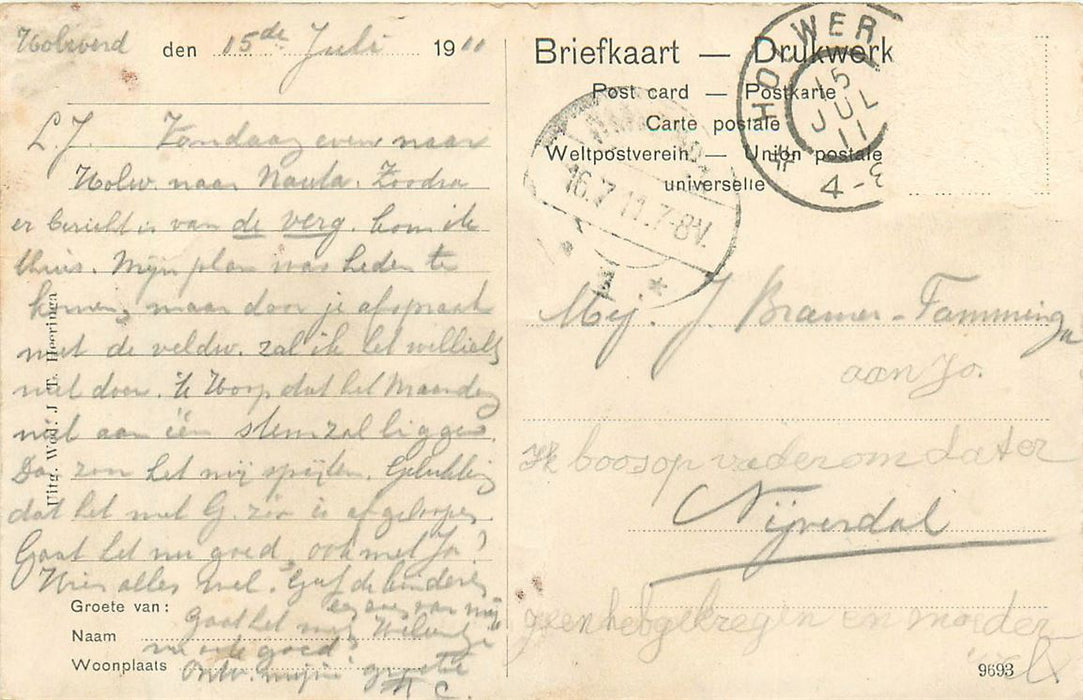 Holwerd den 15de Juli 1911
L. J. Vandaag even naar
Holw. naar Nauta. Zoodra
er bericht is van de verg. kom ik
thuis. Mijn plan was heden te
komen, maar door je afspraak
met de veldw. zal ik het
niet doen. Ik hoop dat het Maandag
niet aan één stem zal liggen.
Dan zou het mij spijten. Gelukkig
dat het met G. zóó is afgeloopen.
Gaat het nu goed, ook met Jo?
Hier alles wel. Geef de kinderen
van mij
Groete van: Gaat het met
Naam goed?
Woonplaats Ontv. mijne groete
Uitg. Wed. J. T. Heeringa
Briefkaart — Drukwerk
Post card — Postkarte
Carte postale
Weltpostverein — Union postale
universelle
HOLWER
15
JUL
11
4-8
16.7.11.7-8V.
1
Mej. J. Bramer-Tamminga
aan Jo.
Ik boos op vader om dat er
Nijverdal
geen heb gekregen en moeder
9693